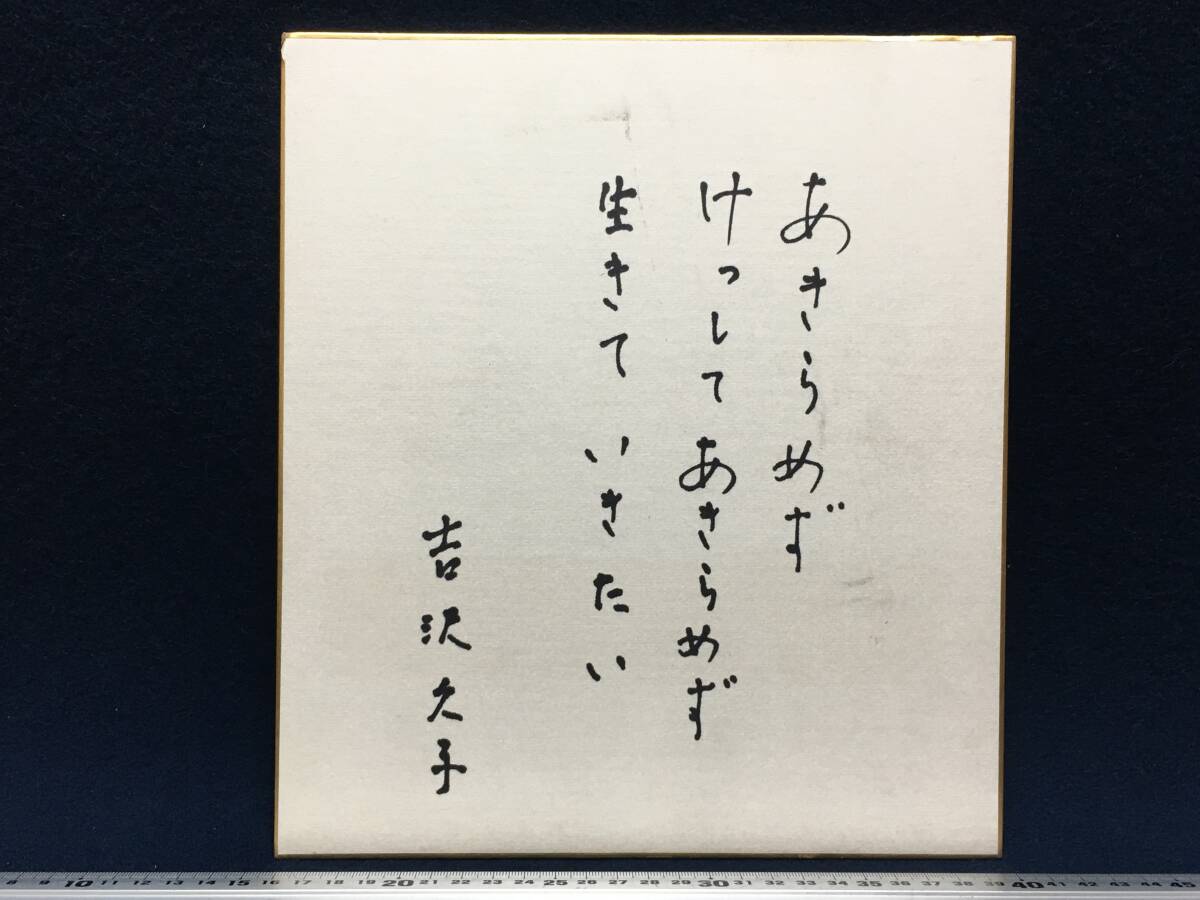 あきらめず
けっしてあきらめず
生きていきたい
吉沢久子
8 9 10 11 12 13 14 15 16 17 18 19 20 21 22 23 24 25 26 27 28 29 30 31 32 33 34 35 36 37 38 39 40 41 42 43 44 45